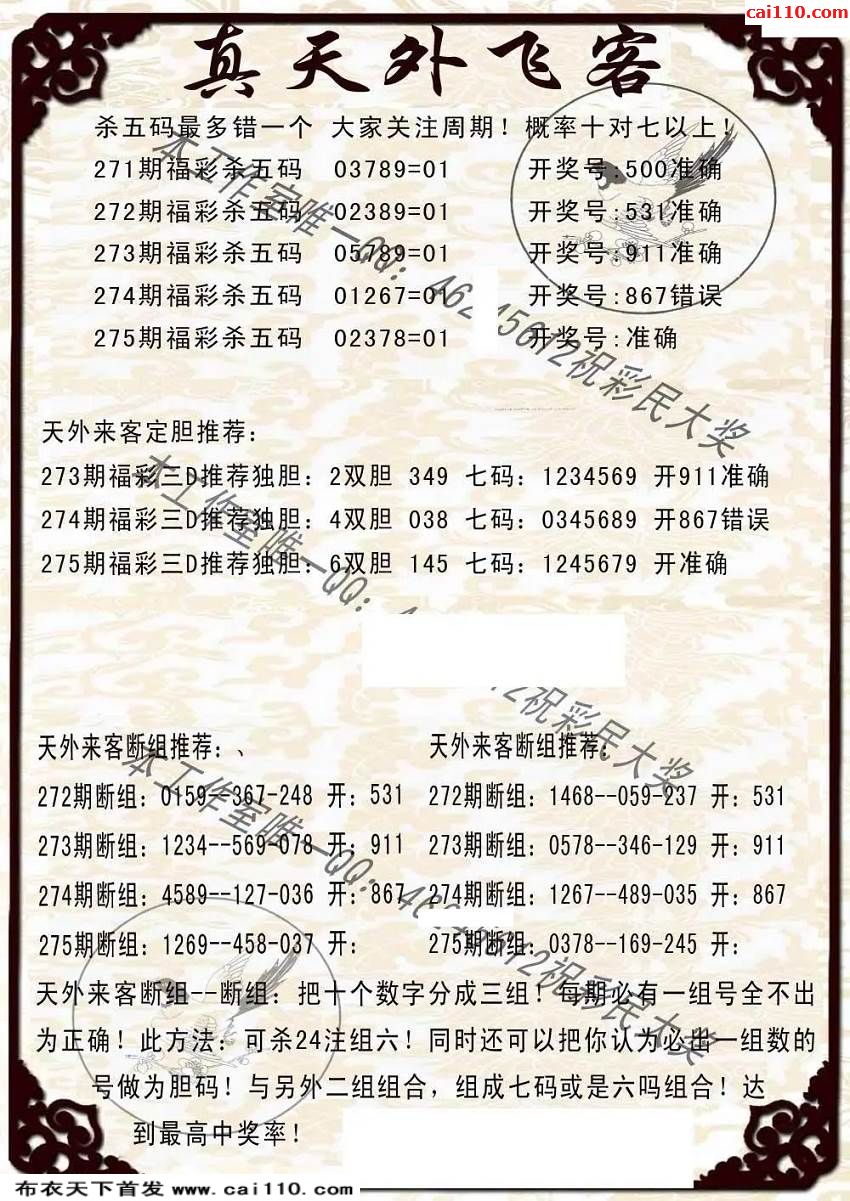 cai110.com
真天外飞客
杀五码最多错一个 大家关注周期！概率十对七以上！
271期福彩杀五码 03789=01 开奖号:500准确
272期福彩杀五码 02389=01 开奖号:531准确
273期福彩杀五码 05789=01 开奖号:911准确
274期福彩杀五码 01267=01 开奖号:867错误
275期福彩杀五码 02378=01 开奖号:准确
天外来客定胆推荐：
273期福彩三D推荐独胆：2双胆 349 七码：1234569 开911准确
274期福彩三D推荐独胆：4双胆 038 七码：0345689 开867错误
275期福彩三D推荐独胆：6双胆 145 七码：1245679 开准确
天外来客断组推荐：、 天外来客断组推荐：
272期断组：0159--367-248 开：531 272期断组：1468--059-237 开：531
273期断组：1234--569-078 开：911 273期断组：0578--346-129 开：911
274期断组：4589--127-036 开：867 274期断组：1267--489-035 开：867
275期断组：1269--458-037 开： 275期断组：0378--169-245 开：
天外来客断组--断组：把十个数字分成三组！每期必有一组号全不出
为正确！此方法：可杀24注组六！同时还可以把你认为必出一组数的
号做为胆码！与另外二组组合，组成七码或是六吗组合！达
到最高中奖率！
本工作室唯一QQ：46 祝彩民大奖
本工作室唯一QQ： 祝彩民大奖
本工作室唯一QQ：46 祝彩民大奖
布衣天下首发 www.cai110.com